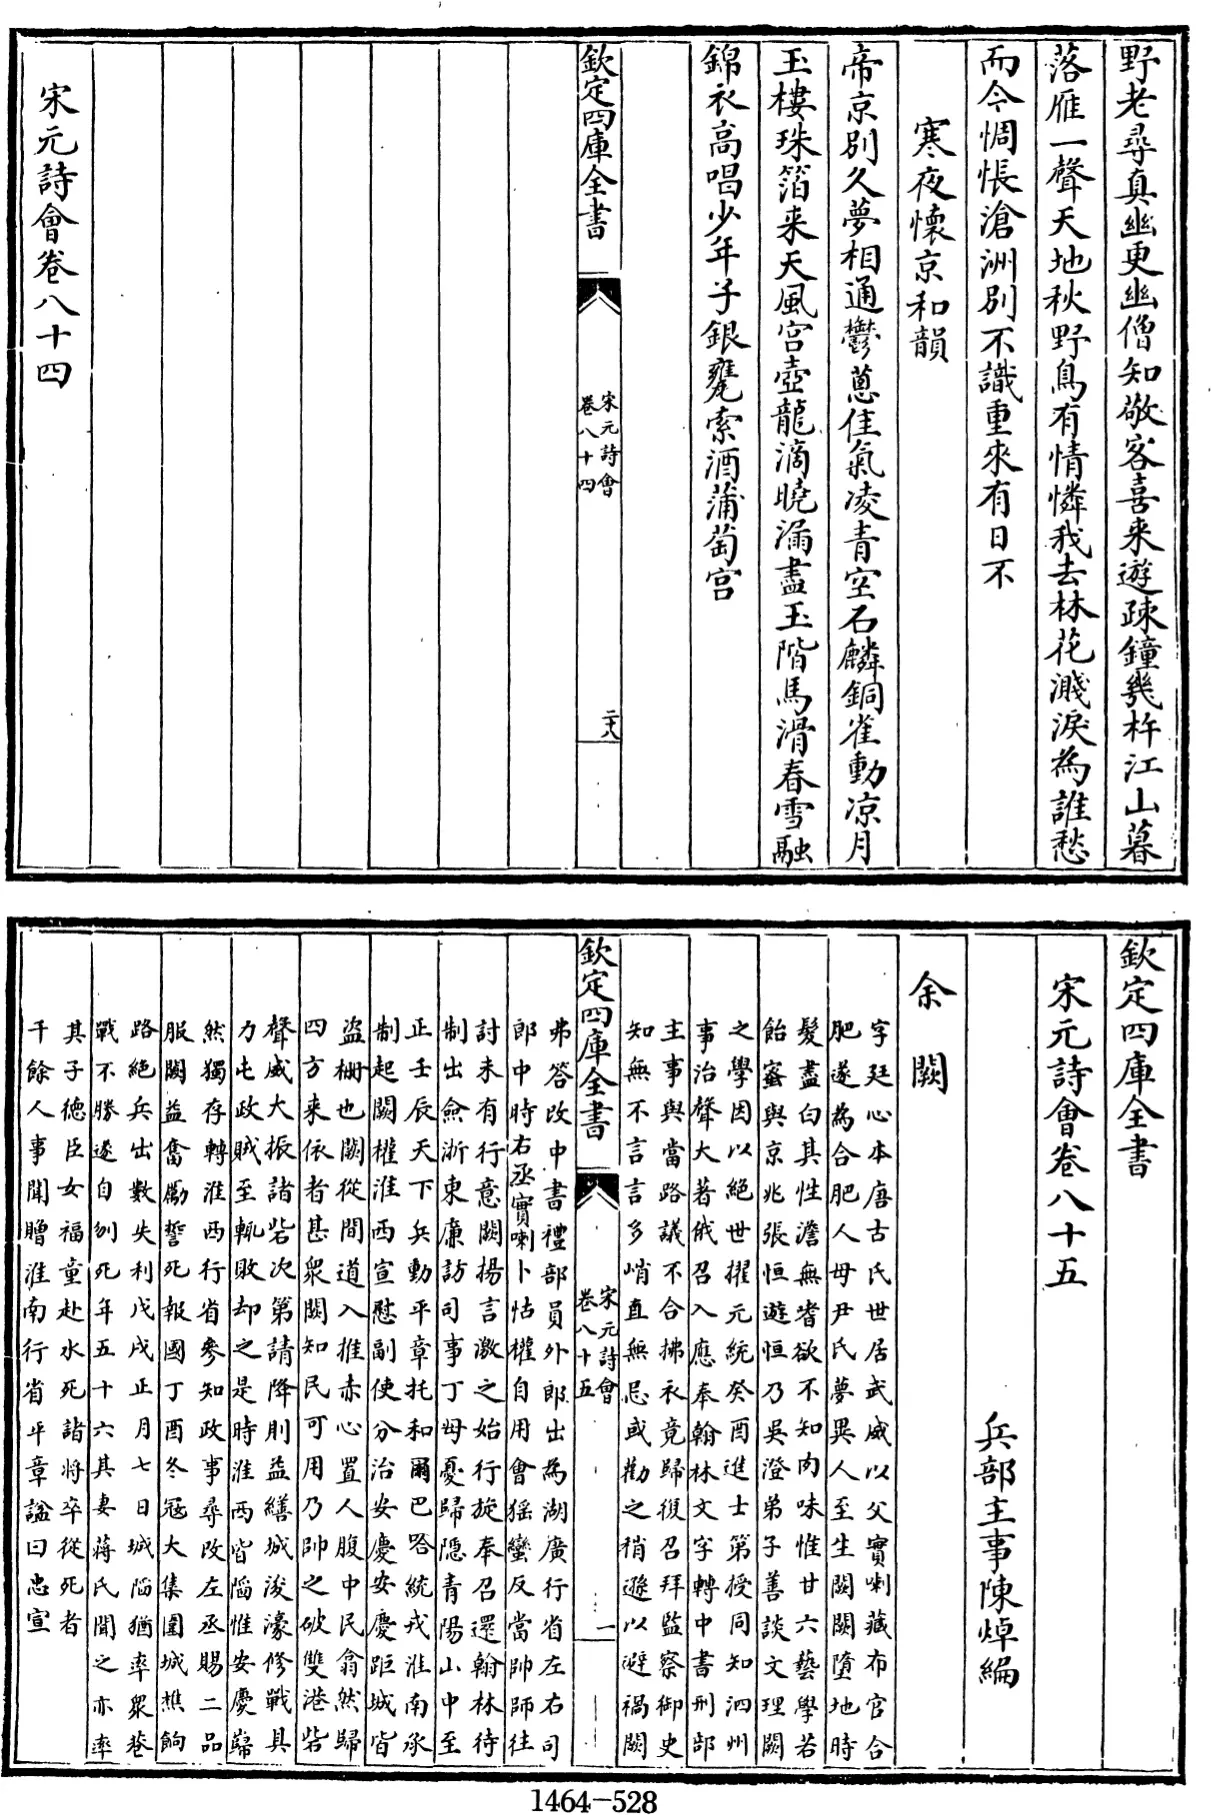 野老尋真幽更幽僧知敬客喜来遊踈鐘幾杵江山暮
落雁一聲天地秋野鳥有情憐我去林花濺淚為誰愁
而今惆悵滄洲别不識重來有日不
寒夜懷京和韻
帝京别久夢相通鬱蔥佳氣凌青空石麟銅雀動凉月
玉樓珠箔来天風宫壺龍滴曉漏盡玉階馬滑春雪融
錦衣髙唱少年子銀甕索酒蒲萄宫
欽定四庫全書
宋元詩會
卷八十四
二十八
宋元詩會卷八十四
欽定四庫全書
宋元詩會卷八十五
兵部主事陳焯編
余闕
字廷心本唐古氏世居武威以父實喇藏布官合
肥遂為合肥人母尹氏夢異人至生闕闕墮地時
髮盡白其性澹無嗜欲不知肉味惟甘六藝學若
飴蜜與京兆張恒遊恒乃吳澄弟子善談文理闕
之學因以絶世擢元統癸酉進士第授同知泗州
事治聲大著俄召入應奉翰林文字轉中書刑部
主事與當路議不合拂衣竟歸復召拜監察御史
知無不言言多峭直無忌或勸之稍遜以避禍闕
弗答改中書禮部員外郎出為湖廣行省左右司
郎中時右丞實喇卜怙權自用會猺蠻反當帥師往
討未有行意闕揚言激之始行旋奉召還翰林待
制出僉浙東亷訪司事丁母憂歸隠青陽山中至
正壬辰天下兵動平章托和爾巴咯統戎淮南承
制起闕權淮西宣慰副使分治安慶安慶距城皆
盗柵也闕從間道入推赤心置人腹中民翕然歸
四方来依者甚衆闕知民可用乃帥之破雙港砦
聲威大振諸砦次第請降則益繕城浚濠修戰具
力屯政賊至輒敗却之是時淮西皆䧟惟安慶巋
然獨存轉淮西行省參知政事尋改左丞賜二品
服闕益奮勵誓死報國丁酉冬冦大集圍城樵餉
路絶兵出數失利戊戌正月七日城䧟猶率衆巷
戰不勝遂自刎死年五十六其妻蔣氏聞之亦率
其子德臣女福童赴水死諸將卒從死者
千餘人事聞贈淮南行省平章諡曰忠宣
欽定四庫全書
宋元詩會
卷八十五
一
1464-528